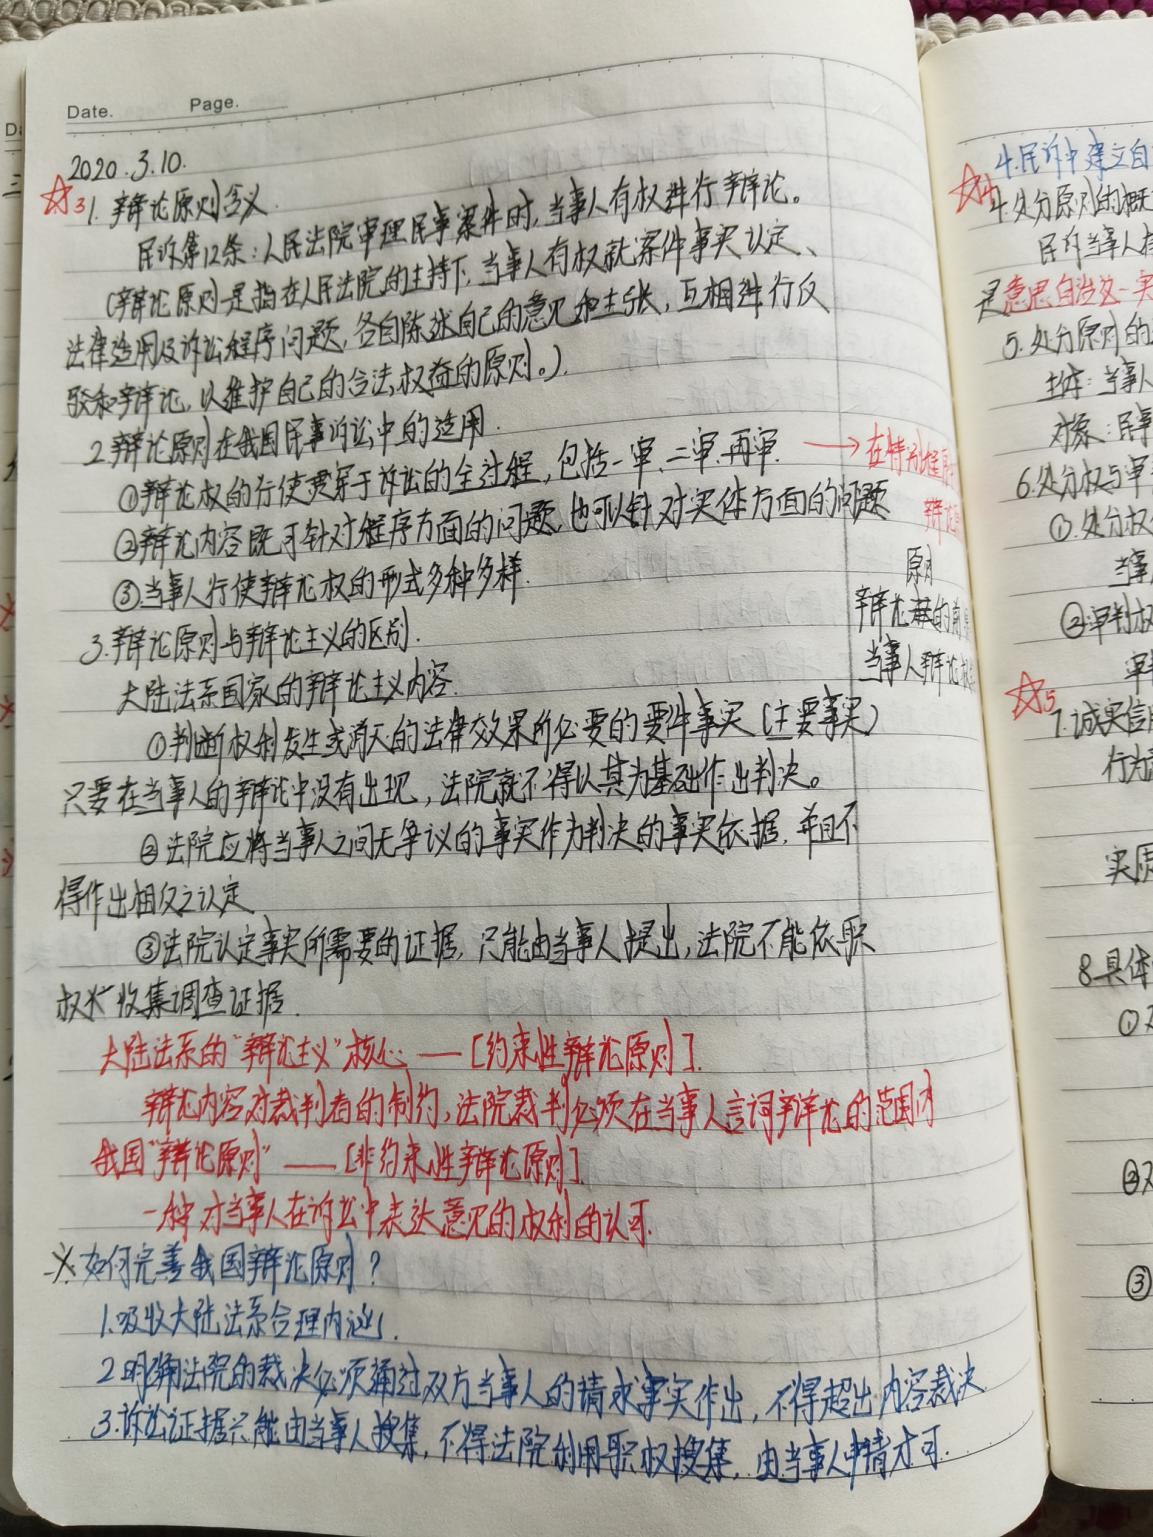 Date. Page.
2020.3.10.
3 1. 辩论原则含义
民诉第12条:人民法院审理民事案件时,当事人有权进行辩论。
(辩论原则是指在人民法院的主持下,当事人有权就案件事实认定、
法律适用及诉讼程序问题,各自陈述自己的意见和主张,互相进行反
驳和辩论,以维护自己的合法权益的原则。).
2.辩论原则在我国民事诉讼中的适用.
①辩论权的行使贯穿于诉讼的全过程,包括一审、二审、再审. → 在特别程序
②辩论内容既可针对程序方面的问题,也可以针对实体方面的问题
辩论
③当事人行使辩论权的形式多种多样.
原则
辩论 的前
3.辩论原则与辩论主义的区别.
当事人辩论权
大陆法系国家的辩论主义内容.
①判断权利发生或消灭的法律效果所必要的要件事实(主要事实)
只要在当事人的辩论中没有出现,法院就不得以其为基础作出判决。
②法院应将当事人之间无争议的事实作为判决的事实依据,并且不
得作出相反之认定
③法院认定事实所需要的证据,只能由当事人提出,法院不能依职
权扩收集调查证据.
大陆法系的"辩论主义"核心——[约束性辩论原则].
辩论内容对裁判者的制约,法院裁判必须在当事人言词辩论的范围内
我国"辩论原则"——[非约束性辩论原则].
一种对当事人在诉讼中表达意见的权利的认可.
※如何完善我国辩论原则?
1.吸收大陆法系合理内涵.
2.明确法院的裁决必须通过双方当事人的请求事实作出,不得超出内容裁决.
3.诉讼证据只能由当事人搜集,不得法院利用职权搜集,由当事人申请才可.
4.民诉中建立自
4
4.处分原则的概
民诉当事人
是意思自治
5.处分原则的
主体:当事人
对象:民事
6.处分权与审
①.处分权
当事
②审判权
5
7.诚实信用
行为
实质
8.具体
①
②
③